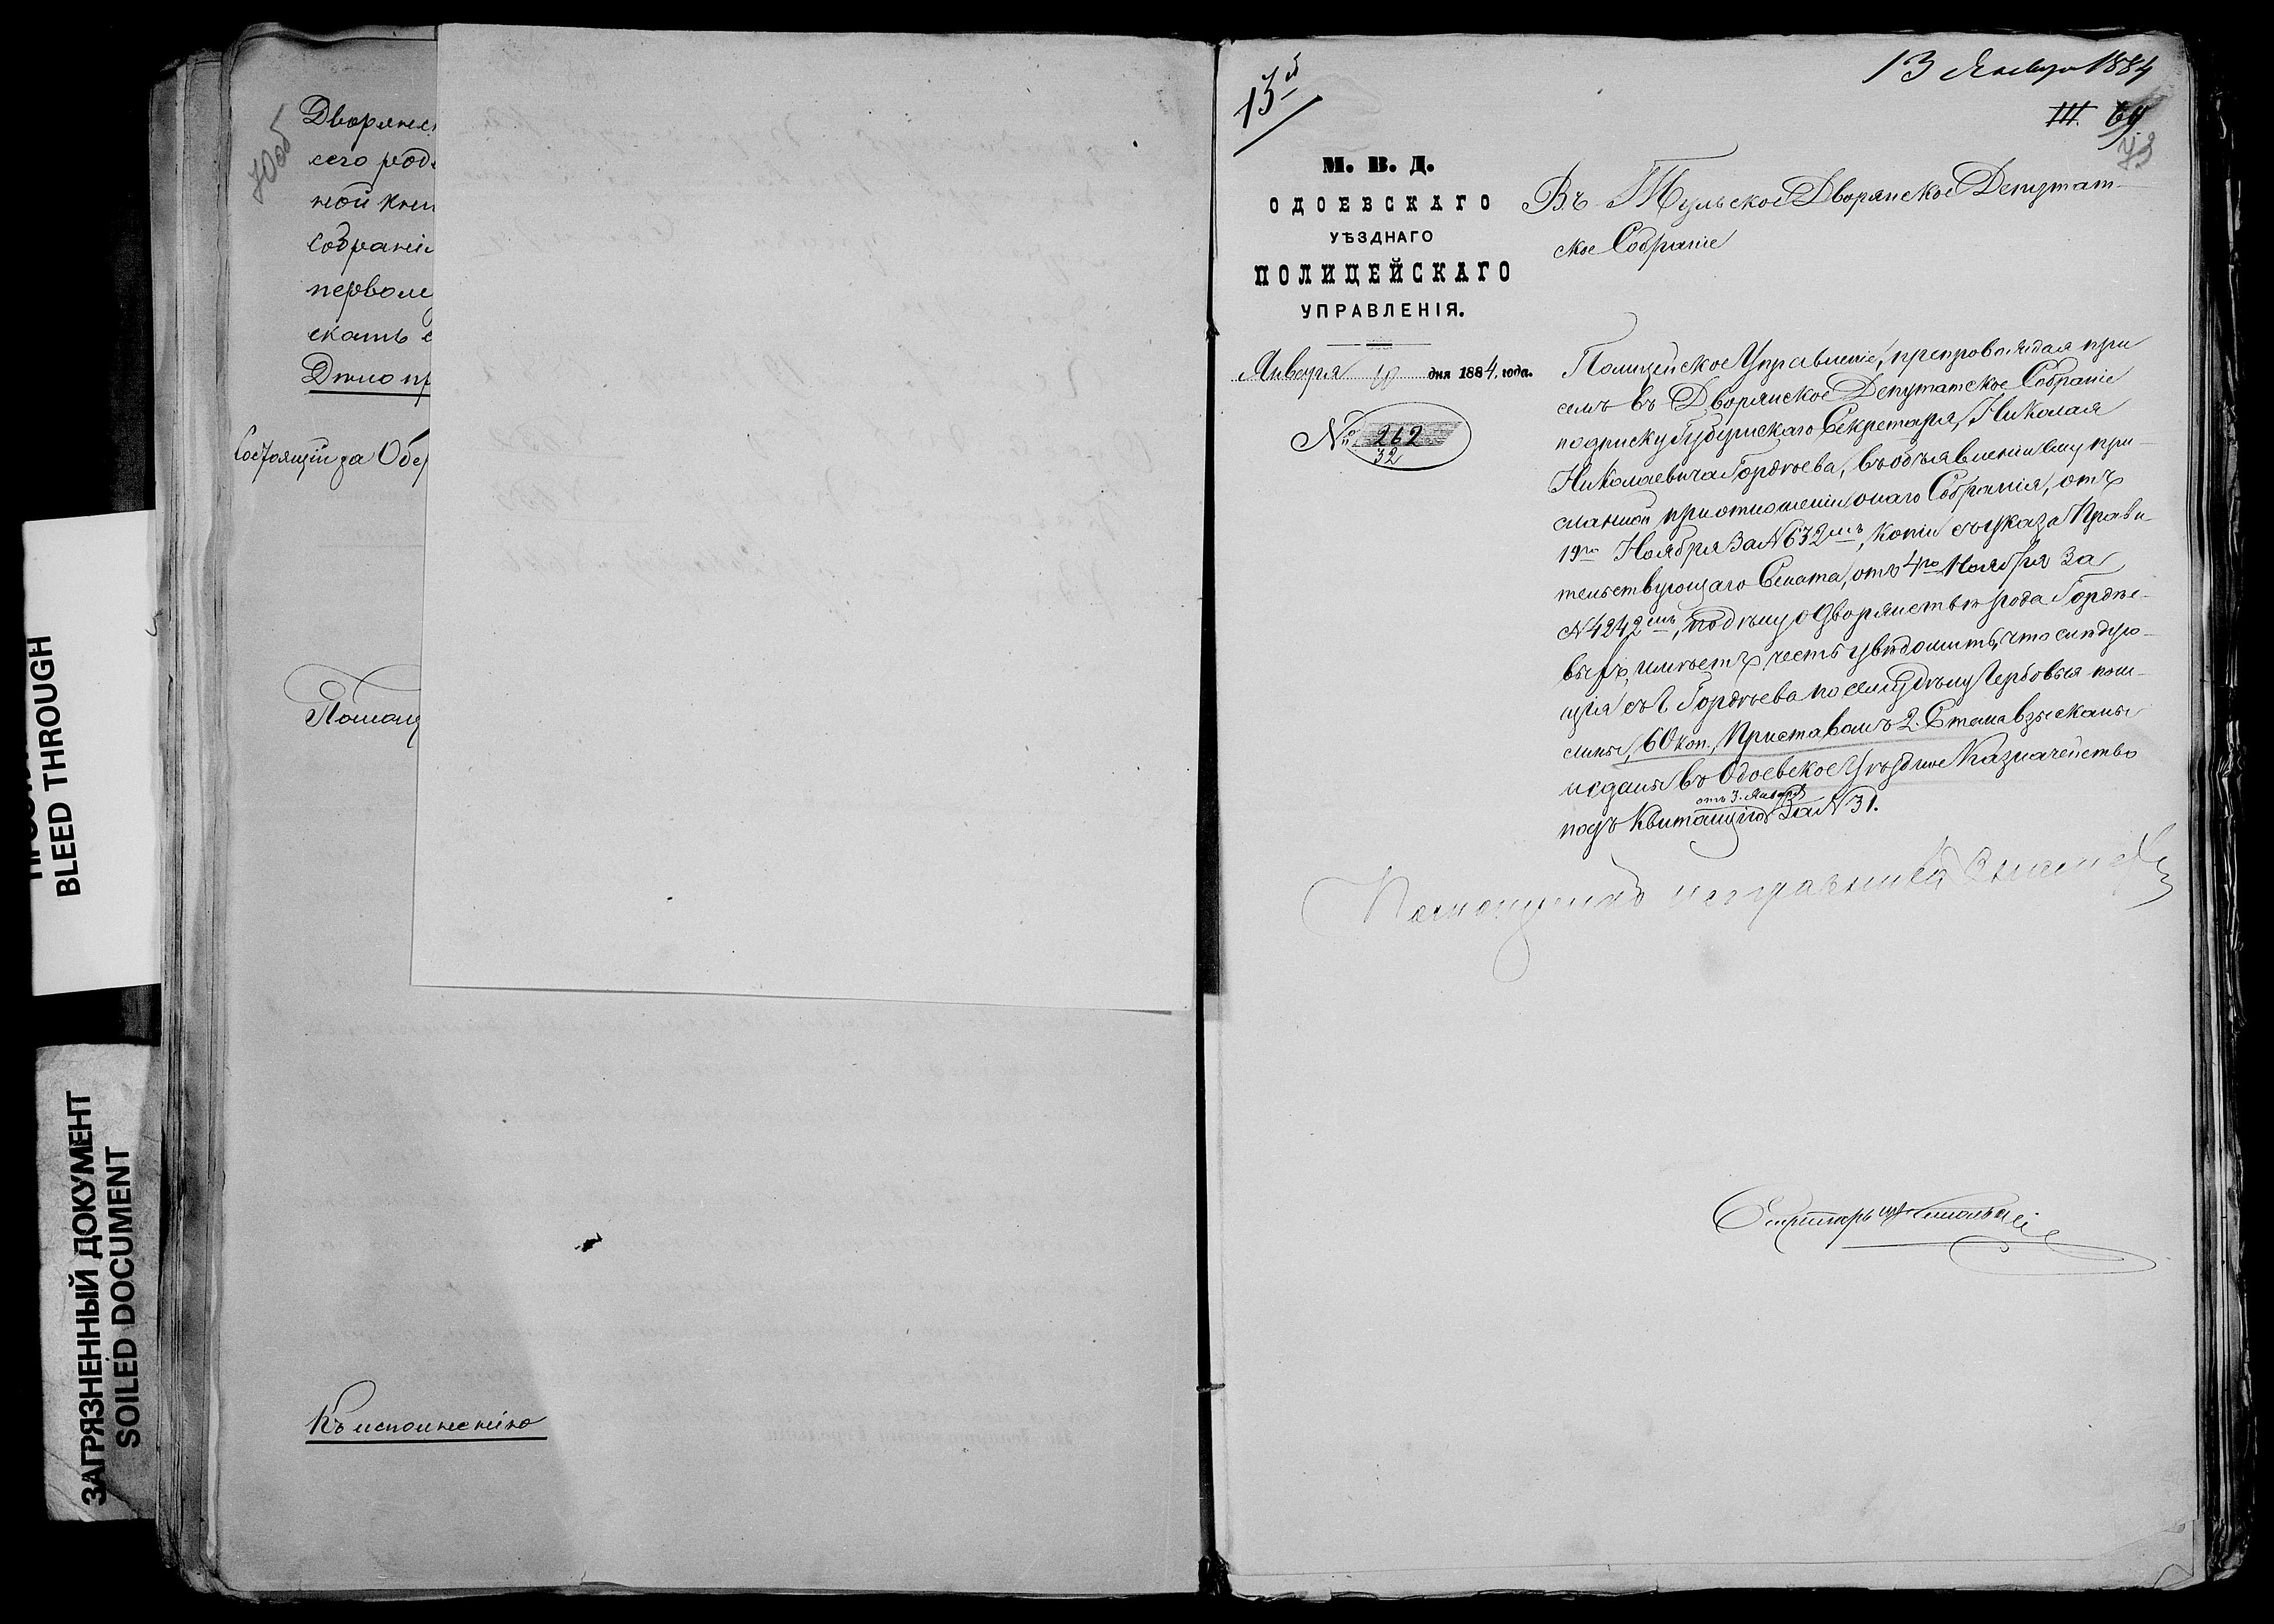 Дворянс
сего род
ной кни
собранiи
первому
скать с
Дѣло пр
Состоящiй за Обе
Помощ
Къ исполненiю
BLEED THROUGH
ЗАГРЯЗНЕННЫЙ ДОКУМЕНТ
SOILED DOCUMENT
13 Января 1884
III. 64
М. В. Д.
ОДОЕВСКАГО
УѢЗДНАГО
ПОЛИЦЕЙСКАГО
УПРАВЛЕНІЯ.
Января 10 дня 1884. года.
№ 262
32
Въ Тульское Дворянское Депутат-
ское Собранiе
Полицейское Управленiе, препровождая при
семъ въ Дворянское Депутатское Собранiе
подписку Губернскаго Секретаря Николая
Николаевича Гордѣева, въ объявленiи ему при-
сланной при отношенiи онаго Собранiя, отъ
19го Ноября за № 632мъ, копiи съ указа Прави-
тельствующаго Сената, отъ 4го Ноября за
№ 4242мъ, по дѣлу о дворянствѣ рода Гордѣе-
выхъ, имѣетъ честь увѣдомить, что слѣдую-
щiя съ Г. Гордѣева по сему дѣлу гербовыя пош-
лины, 60 коп., Приставомъ 2. Стана взысканы
и сданы въ Одоевское Уѣздное Казначейство
отъ 3. Января
подъ квитанцiю за № 31.
Помощникъ исправника
Секретарь